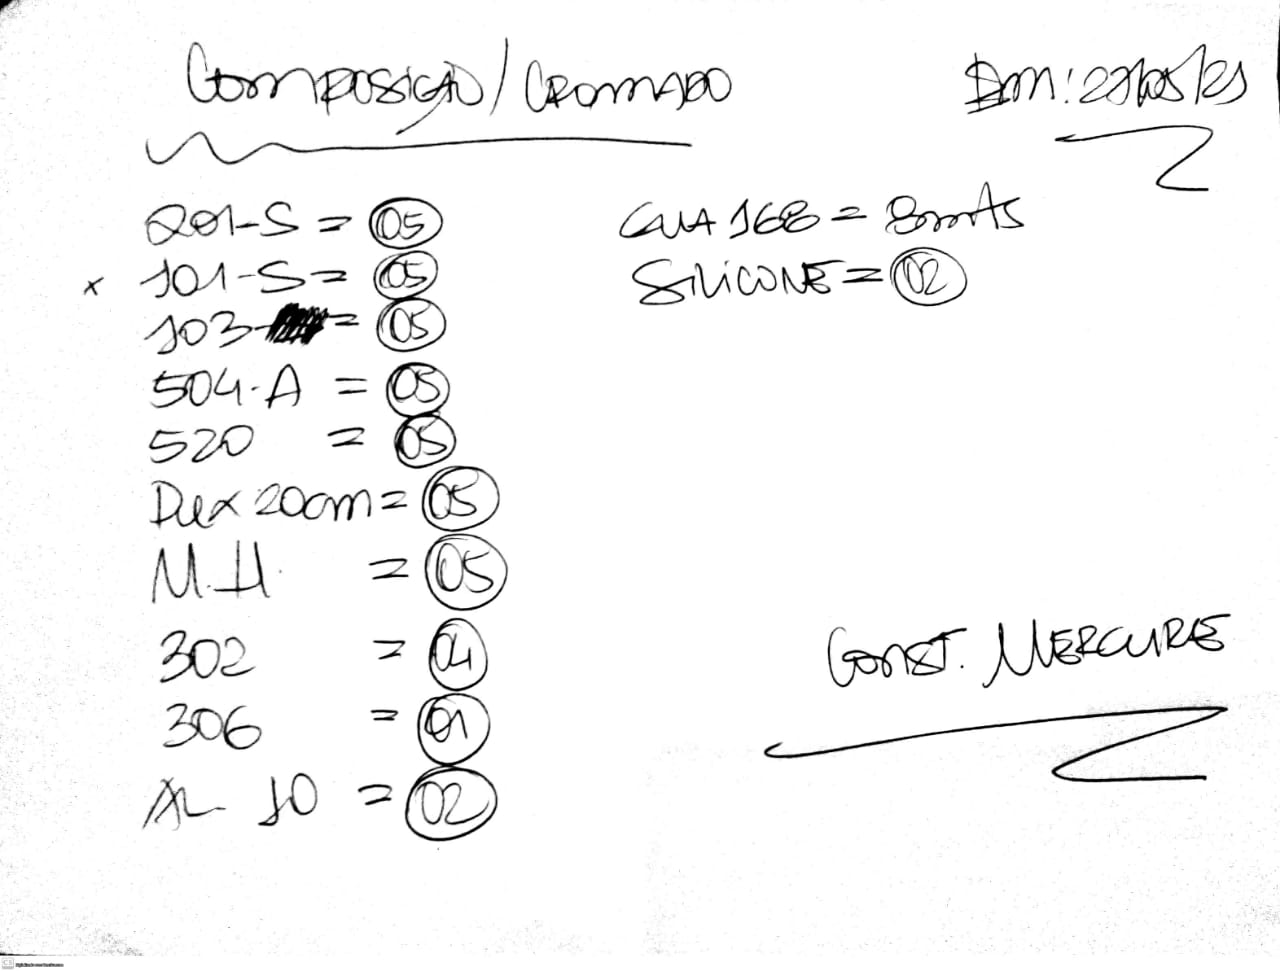 Composição/Cromado
201-S = 05
x 101-S = 05
103- = 05
504-A = 05
520 = 05
Dux 20cm = 05
M.H. = 05
302 = 04
306 = 01
AL 10 = 02
GUA 168 =
SILICONE = 02
Const. MERCURE